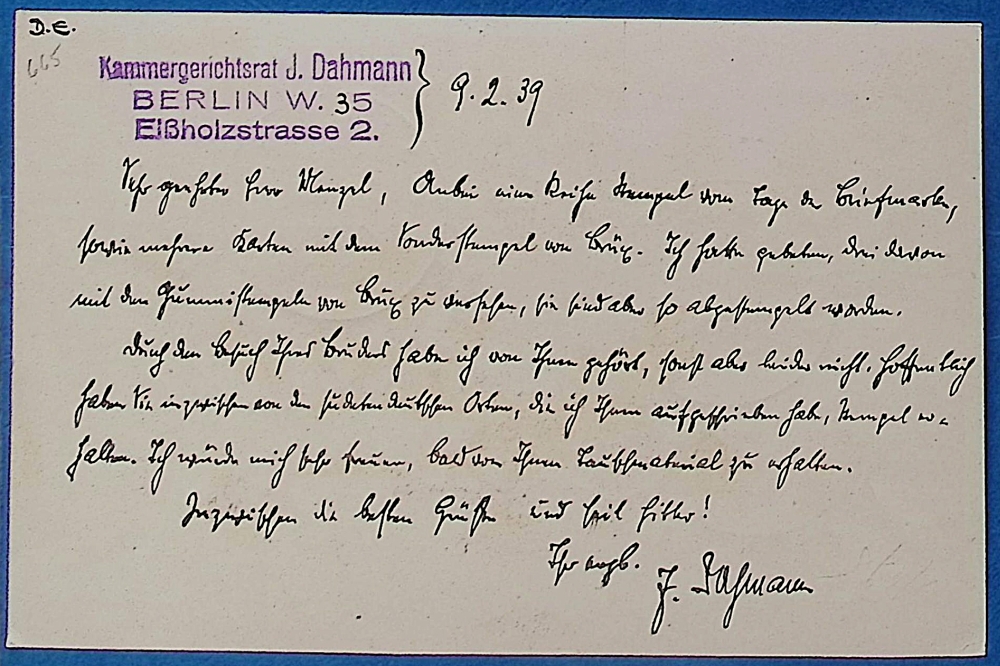 D.E.
665
Kammergerichtsrat J. Dahmann
BERLIN W. 35
Elßholzstrasse 2.
9.2.39
Sehr geehrter Herr Menzel, Anbei eine Reihe Stempel vom Tage der Briefmarke,
sowie mehrere Karten mit dem Sonderstempel von Brüx. Ich hatte gebeten, drei davon
mit den Gummistempeln von Brüx zu versehen, sie sind aber so abgestempelt worden.
Durch den Besuch Ihres Bruders habe ich von Ihnen gehört, sonst aber leider nicht. Hoffentlich
haben Sie inzwischen von den sudetendeutschen Orten, die ich Ihnen aufgeschrieben habe, Stempel er-
halten. Ich würde mich sehr freuen, bald von Ihnen Tauschmaterial zu erhalten.
Inzwischen die besten Grüße und Heil Hitler!
Ihr ergb.
J. Dahmann